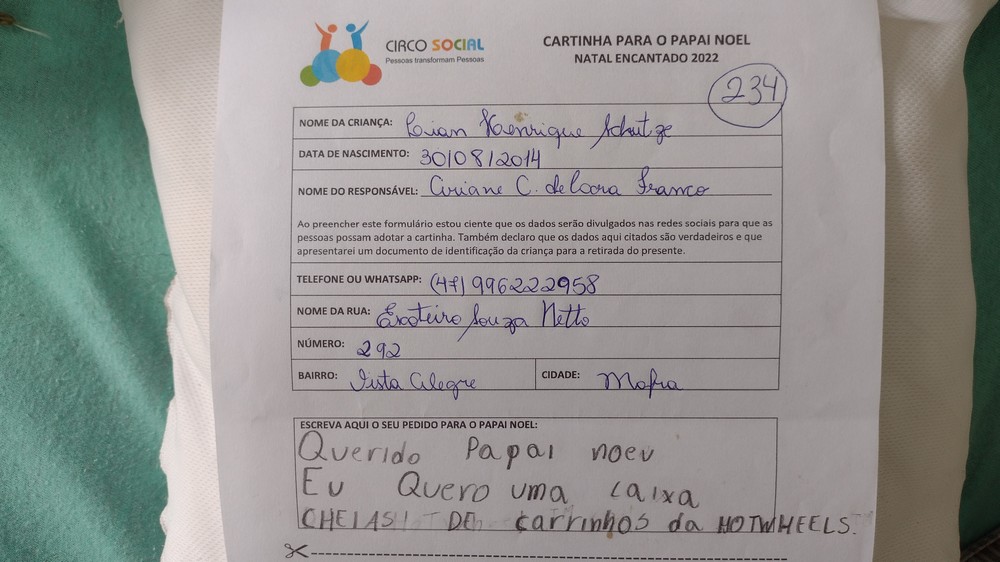 CIRCO SOCIAL
Pessoas transformam Pessoas
CARTINHA PARA O PAPAI NOEL
NATAL ENCANTADO 2022
234
NOME DA CRIANÇA: Henrique Schutze
DATA DE NASCIMENTO: 30/08/2014
NOME DO RESPONSÁVEL: Ariane C. de Franco
Ao preencher este formulário estou ciente que os dados serão divulgados nas redes sociais para que as
pessoas possam adotar a cartinha. Também declaro que os dados aqui citados são verdadeiros e que
apresentarei um documento de identificação da criança para a retirada do presente.
TELEFONE OU WHATSAPP: (47) 996222958
NOME DA RUA: Escoteiro Souza Netto
NÚMERO: 292
BAIRRO: Vista Alegre CIDADE: Mafra
ESCREVA AQUI O SEU PEDIDO PARA O PAPAI NOEL:
Querido Papai noeu
Eu Quero uma caixa
CHEIAS DE carrinhos da HOTWHEELS.